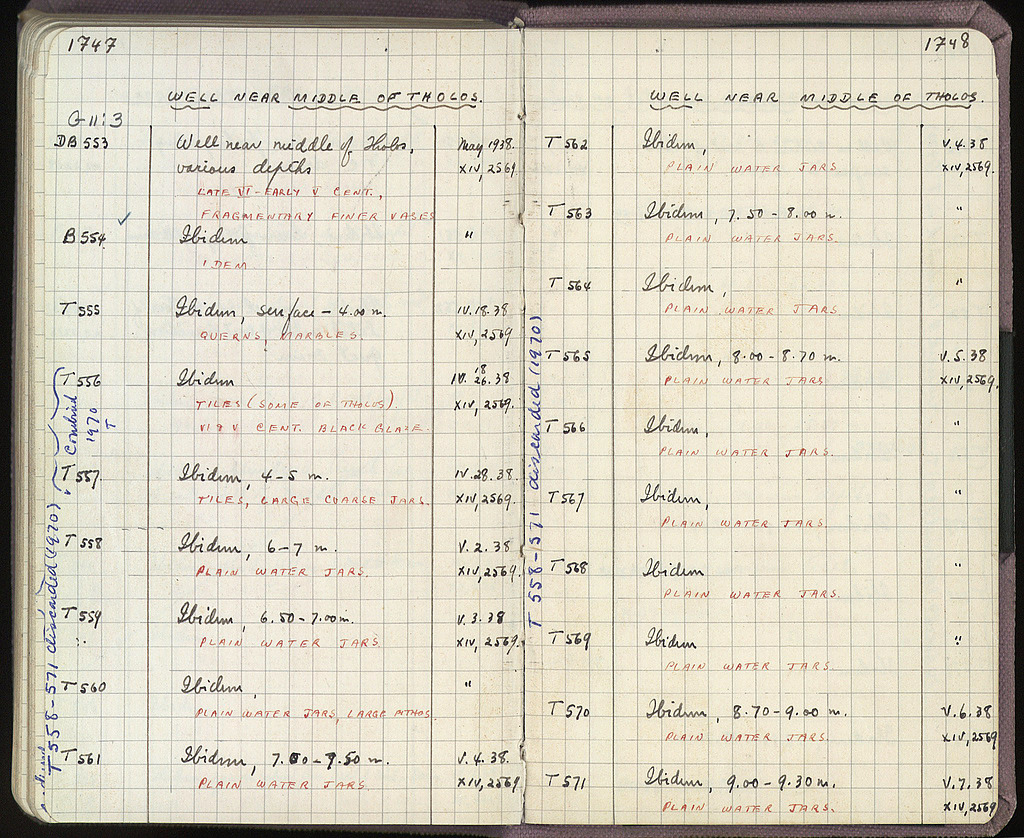 1747
WELL NEAR MIDDLE OF THOLOS.
G 11:3
DB 553 Well near middle of Tholos, May 1938.
various depths XIV, 2569.
LATE VI - EARLY V CENT.,
FRAGMENTARY FINER VASES
✓
B 554. Ibidem "
IDEM
T 555 Ibidem, surface - 4.00 m. IV.18.38
QUERNS, MARBLES. XIV, 2569
T 556 Ibidem IV. 18 26.38
TILES (SOME OF THOLOS). XIV, 2569.
VI & V CENT. BLACK GLAZE.
Combined
1970
T
T 557. Ibidem, 4-5 m. IV.28.38.
TILES, LARGE COARSE JARS. XIV, 2569.
T 558 Ibidem, 6-7 m. V.2.38
PLAIN WATER JARS. XIV, 2569.
T 559 Ibidem, 6.50-7.00 m. V.3.38
PLAIN WATER JARS XIV, 2569.
T 560 Ibidem, "
PLAIN WATER JARS, LARGE PITHOS
T 561 Ibidem, 7.00-7.50 m. V.4.38.
PLAIN WATER JARS. XIV, 2569
T 558-571 discarded (1970)
1748
WELL NEAR MIDDLE OF THOLOS.
T 562 Ibidem, V.4.38
PLAIN WATER JARS. XIV, 2569.
T 563 Ibidem, 7.50-8.00 m. "
PLAIN WATER JARS.
T 564 Ibidem, "
PLAIN WATER JARS.
T 565 Ibidem, 8.00-8.70 m. V.5.38
PLAIN WATER JARS XIV, 2569.
T 566 Ibidem, "
PLAIN WATER JARS.
T 567 Ibidem, "
PLAIN WATER JARS
T 568 Ibidem "
PLAIN WATER JARS.
T 569 Ibidem "
PLAIN WATER JARS.
T 570 Ibidem, 8.70-9.00 m. V.6.38
PLAIN WATER JARS. XIV, 2569
T 571 Ibidem, 9.00-9.30 m. V.7.38
PLAIN WATER JARS. XIV, 2569
T 558-571 discarded (1970)